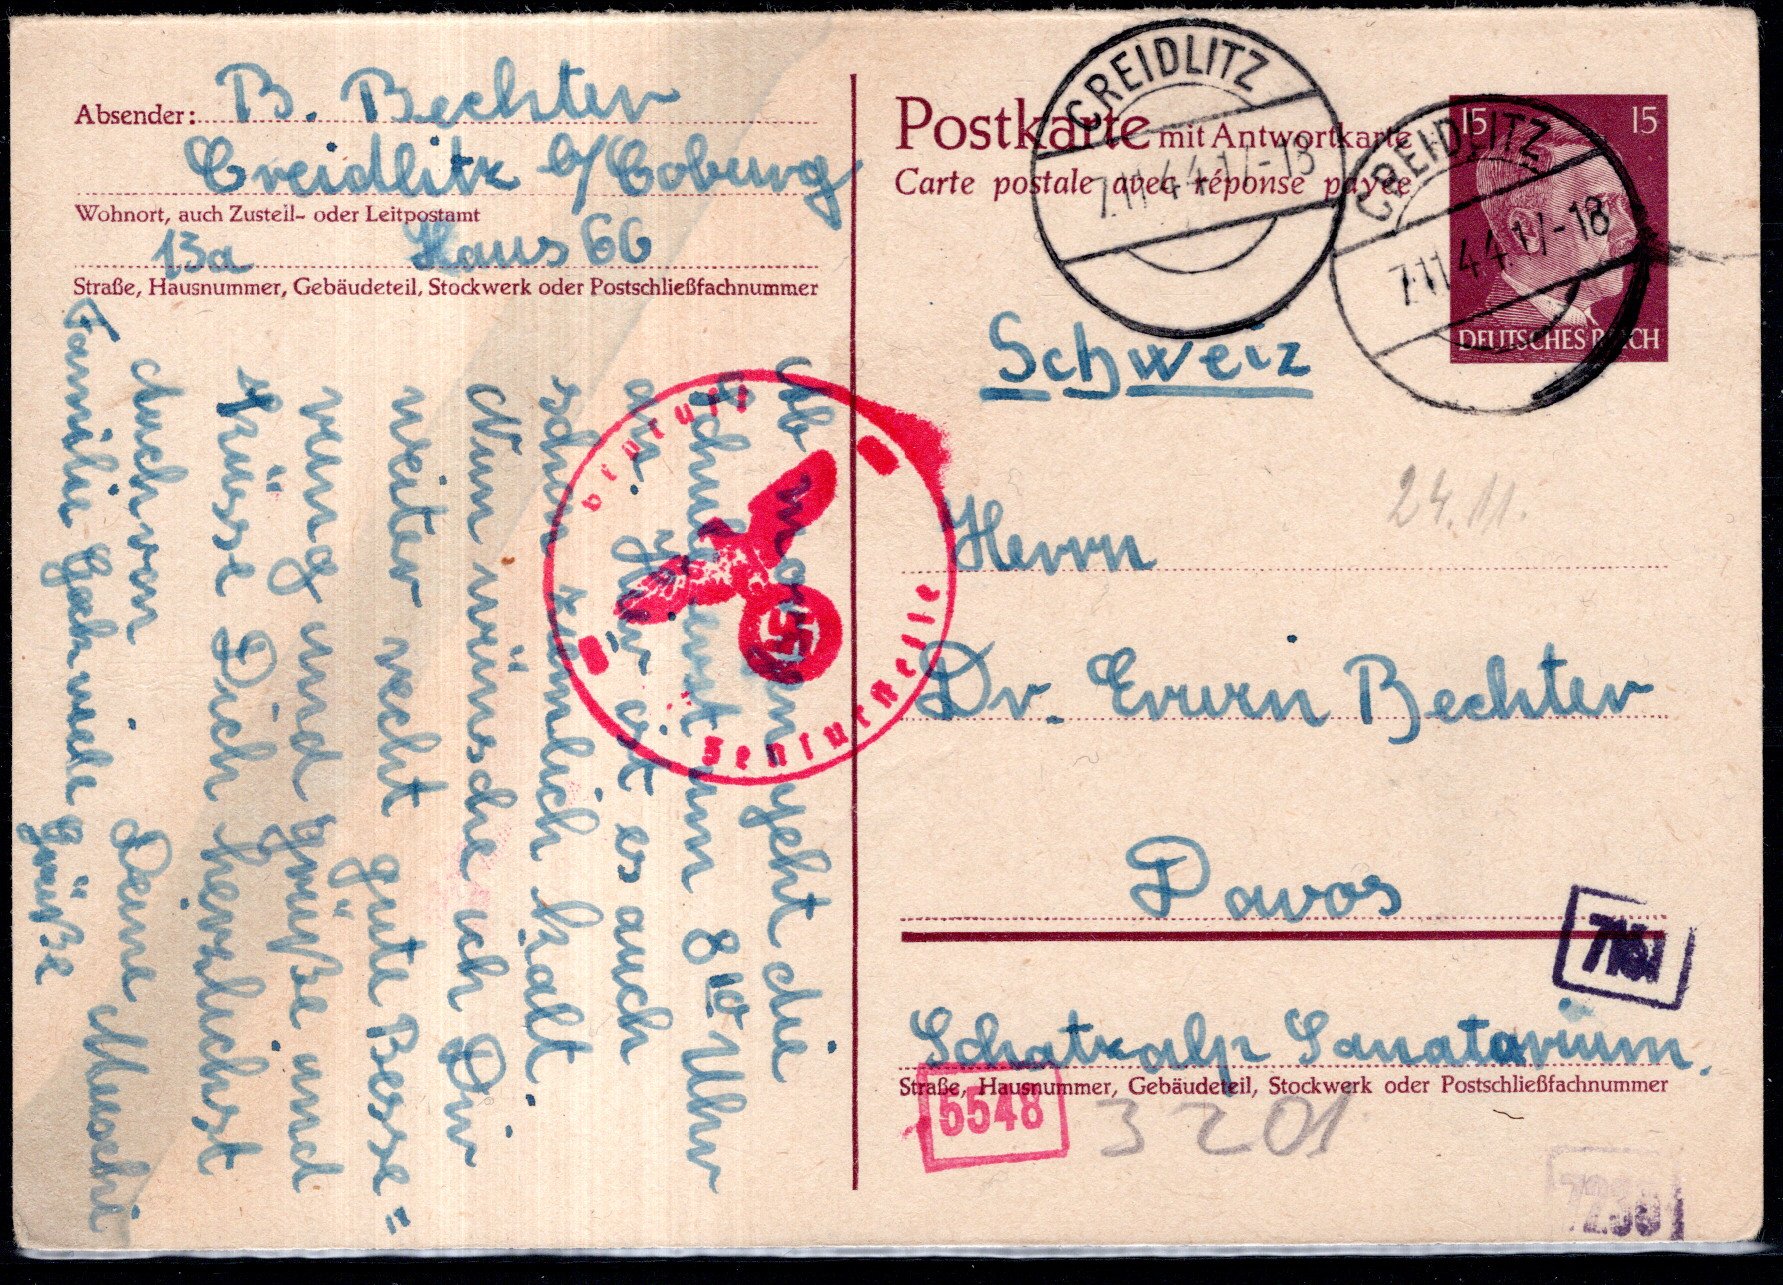 Absender: B. Bechter
Creidlitz b/Coburg
Wohnort, auch Zustell- oder Leitpostamt
13a Haus 66
Straße, Hausnummer, Gebäudeteil, Stockwerk oder Postschließfachnummer
Ab morgen geht die
Schule erst um 8 10 Uhr
an. Hier ist es auch
schon ziemlich kalt.
Nun wünsche ich Dir
weiter recht gute Besse=
rung und grüße und
küsse Dich herzlichst
Deine Muschi
auch von
Familie viele Grüße
Postkarte mit Antwortkarte
Carte postale avec réponse payée
CREIDLITZ
7.11.44.17-18
CREIDLITZ
7.11.44.17-18
15 15
DEUTSCHES REICH
Schweiz
24.11.
Herrn
Dr. Erwin Bechter
Davos
Schatzalp Sanatorium.
Straße, Hausnummer, Gebäudeteil, Stockwerk oder Postschließfachnummer
Zensurstelle
5548
3201